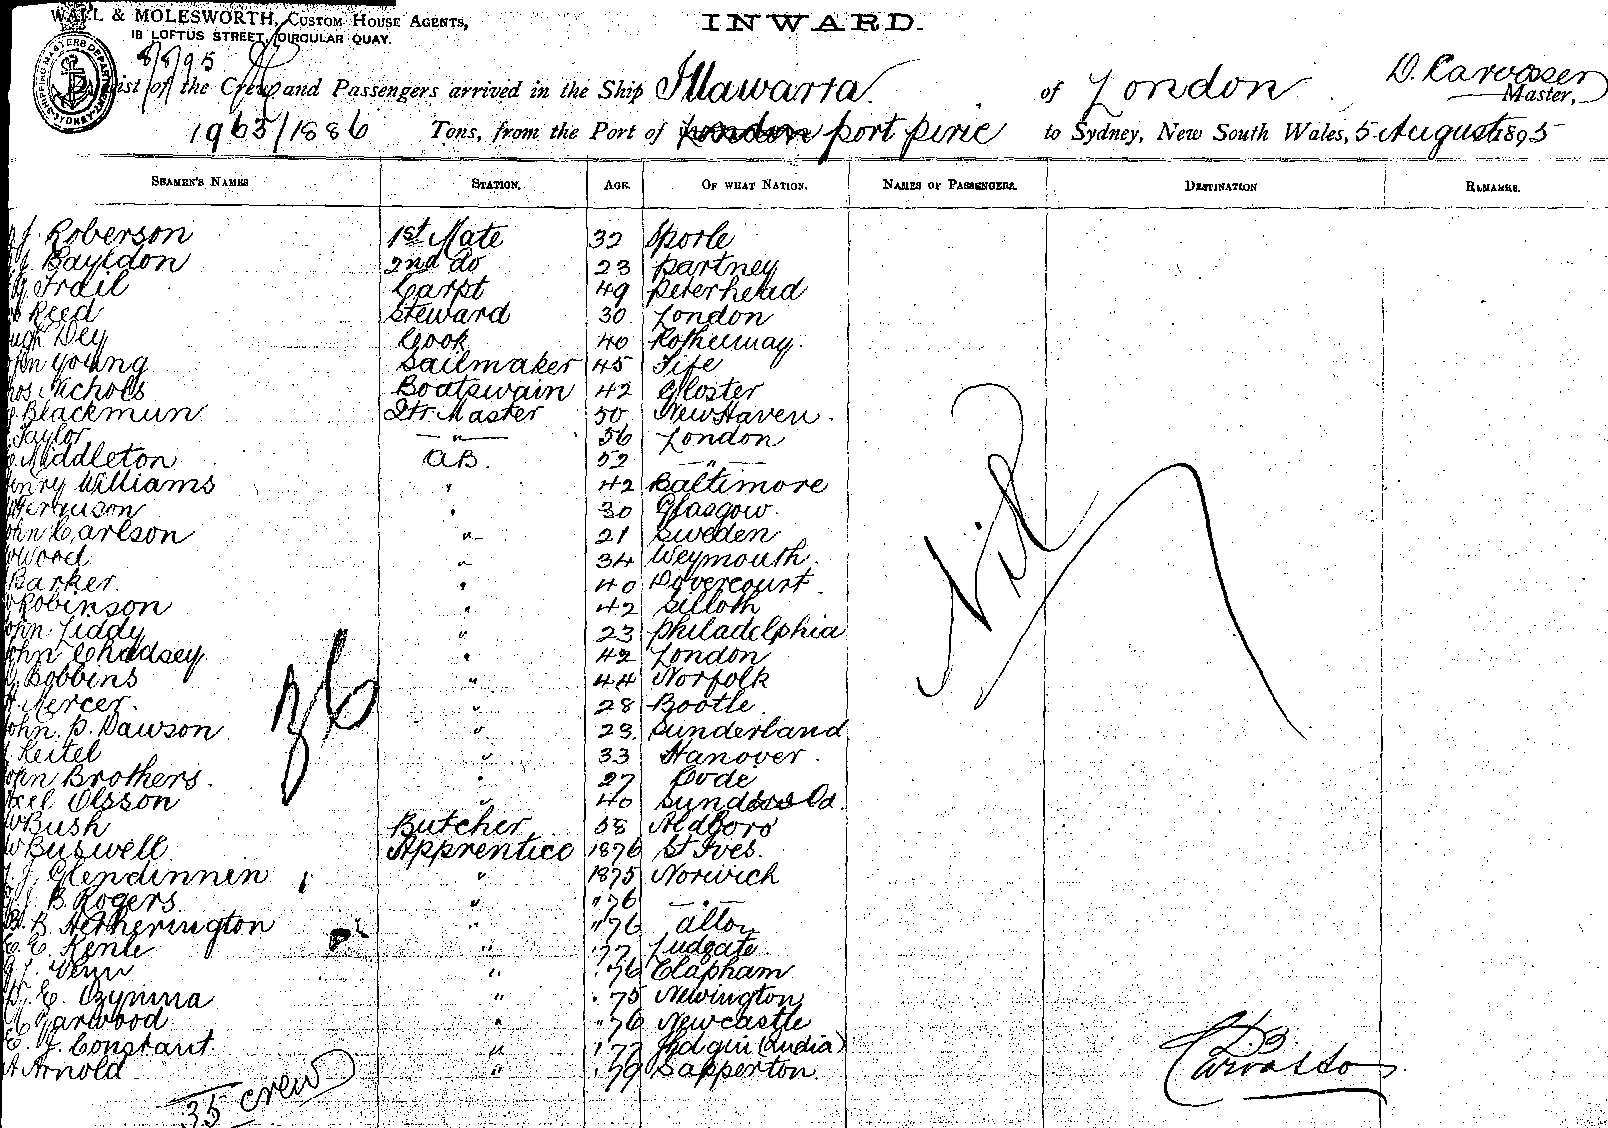 WALL & MOLESWORTH, CUSTOM HOUSE AGENTS,
18 LOFTUS STREET, CIRCULAR QUAY.
INWARD.
8/8/95
List of the Crew and Passengers arrived in the Ship Illawarra of London D. Carvosser Master,
1963/1886 Tons, from the Port of London port pirie to Sydney, New South Wales, 5 August 1895
SEAMEN'S NAMES STATION. AGE. OF WHAT NATION. NAMES OF PASSENGERS. DESTINATION REMARKS.
J. Roberson 1st Mate 32 Sporle
Bayldon 2nd do 23 partney
Trail Carpt 49 peterhead
Reed Steward 30 London
Dey Cook 40 Rothemay.
Young Sailmaker 45 Fife
Nichols Boatswain 42 Gloster
Blackmun Qtr Master 50 New Haven.
Taylor — " — 56 London
Middleton A.B. 52 — " —
enry Williams " 42 Baltimore
Ferguson " 30 Glasgow.
ohn Carlson " 21 Sweden
Wood " 34 Weymouth.
Barker " 40 Dovercourt
Robinson " 42 Silloth
ohn Liddy " 23 philadelphia
ohn Chadsey " 42 London
Bobbins " 44 Norfolk
Mercer. " 28 Bootle
ohn P. Dawson " 23 Sunderland
Keitel " 33 Hanover.
ohn Brothers. " 27
Olsson " 40
Bush Butcher 58 Aldboro
Buswell Apprentice 1876 St Ives.
J. Glendinnen " 1875 Norwich
B Rogers " "76 — " —
B. Hetherington " "76 alton
E. Kenle " "77 Ludgate
J. Venn " "76 Clapham
E. Ozynma " "75 Newington
Garwood " "76 Newcastle
E. J. Constant. " "77 (India)
Arnold " "79 Sapperton.
Nil
36
35 crew
D B Carvosso